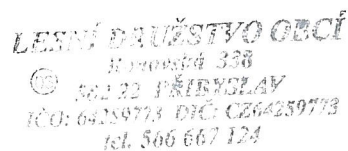 LESNÍ DRUŽSTVO OBCÍ
338
PŘIBYSLAV
IČO: 64259773 DIČ: CZ64259773
tel. 566 667 124